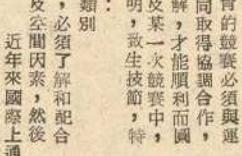 育的競賽必須與運
同取得協調合作，
解，才能順利而圓
及某一次競賽中，
明，致生技節，特
類別
，必須了解和配合
及空間因素，然後
近年來國際上通